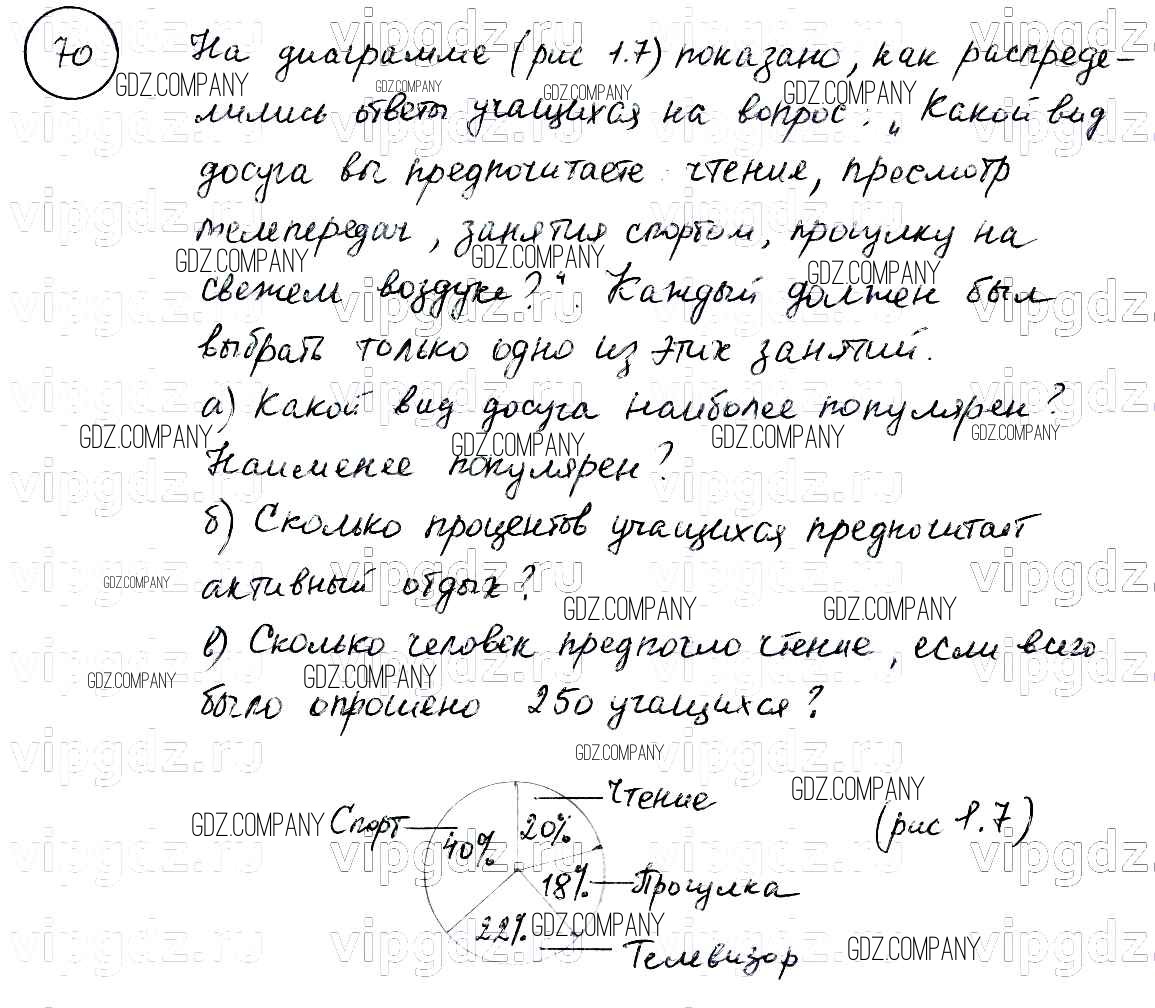 70 На диаграмме (рис 1.7) показано, как распреде-
лились ответы учащихся на вопрос: „Какой вид
досуга вы предпочитаете чтение, просмотр
телепередач, занятия спортом, прогулку на
свежем воздухе?“. Каждый должен был
выбрать только одно из этих занятий.
а) Какой вид досуга наиболее популярен?
Наименее популярен?
б) Сколько процентов учащихся предпочитает
активный отдых?
в) Сколько человек предпочло чтение, если всего
было опрошено 250 учащихся?
Чтение
Спорт 40% 20% (рис 1.7)
18% Прогулка
22% Телевизор
GDZ.COMPANY
vipgdz.ru